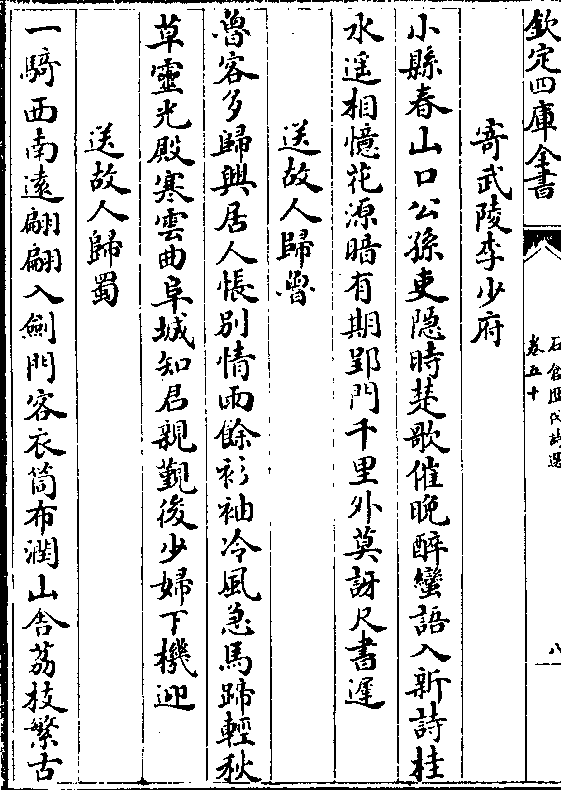 欽定四庫全書
石倉歷代詩選
卷五十
八
寄武陵李少府
小縣春山口公孫吏隱時楚歌催晚醉蠻語入新詩桂
水遥相憶花源暗有期郢門千里外莫訝尺書遲
送故人歸魯
魯客多歸興居人悵别情雨餘衫袖冷風急馬蹄輕秋
草靈光殿寒雲曲阜城知君親覲後少婦下機迎
送故人歸蜀
一騎西南遠翩翩入劍門客衣筒布潤山舍荔枝繁古